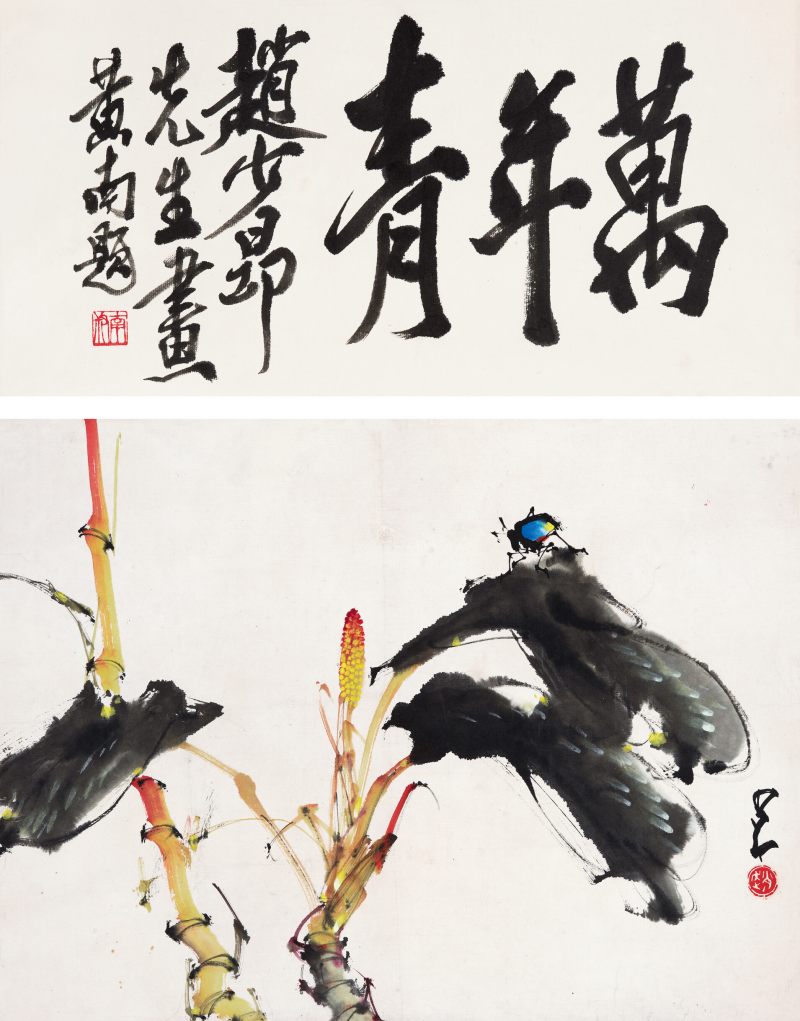 萬年青
趙少昂
先生畫
黃南題
少昂